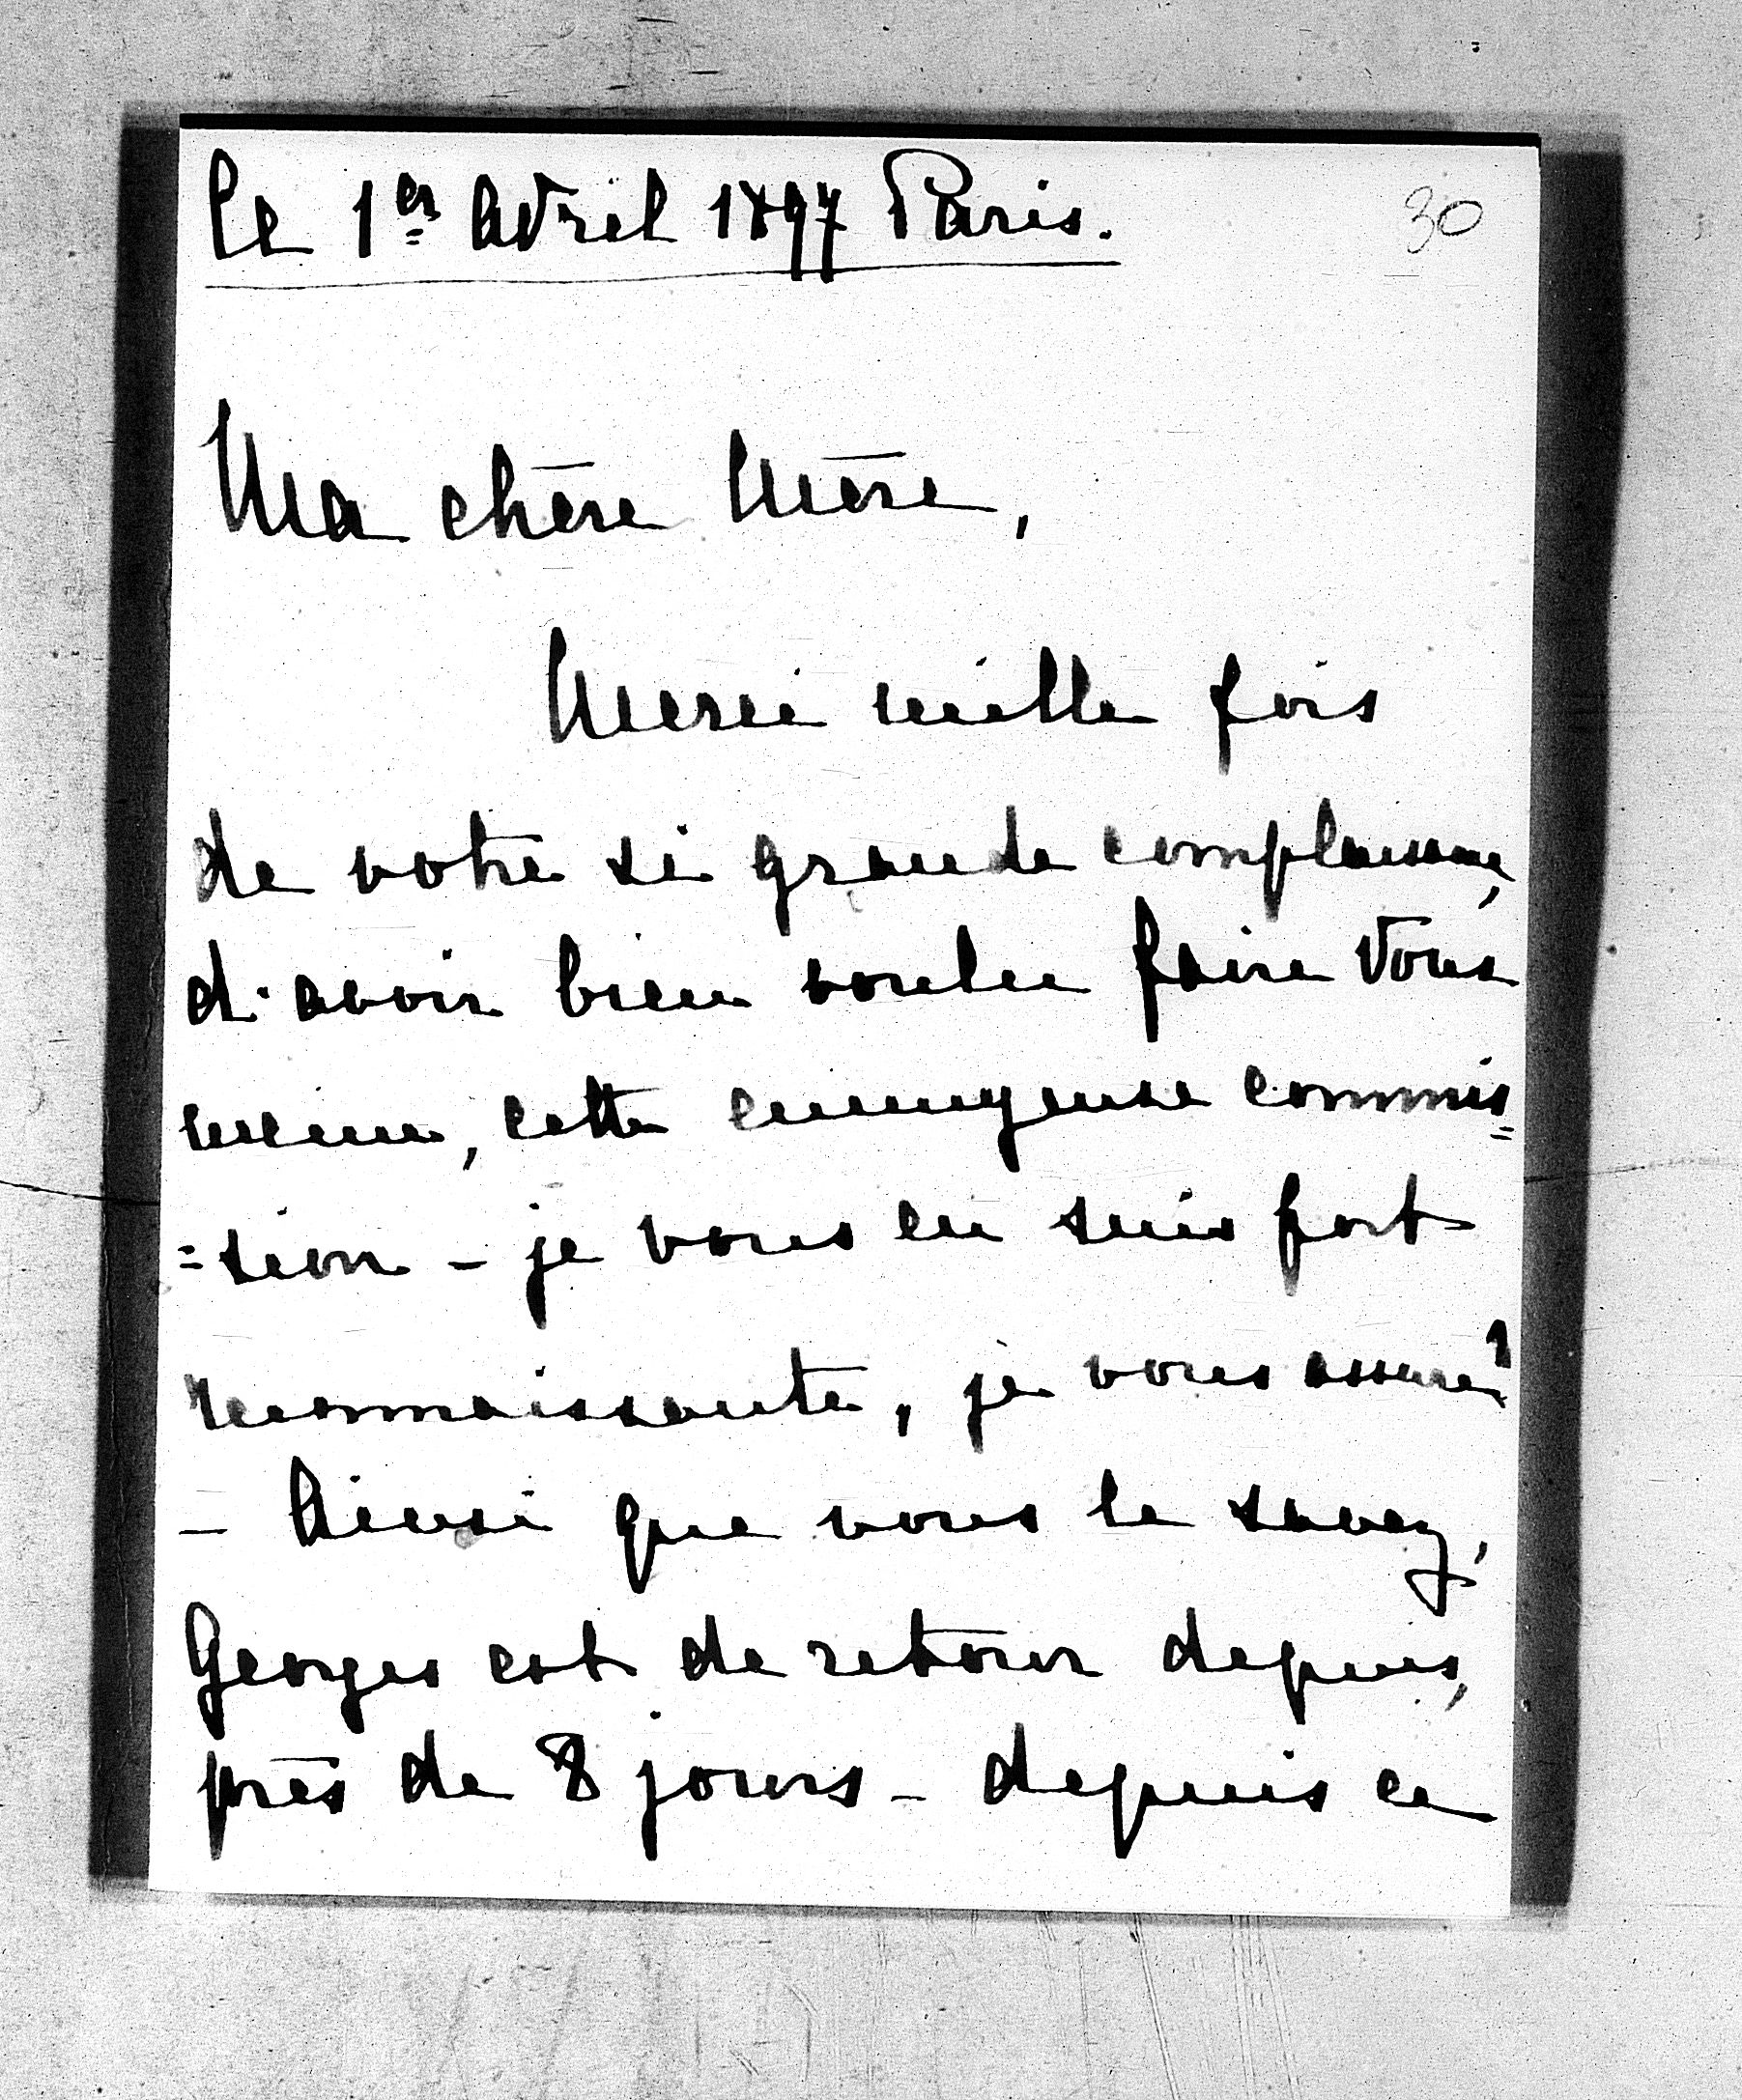 le 1er Avril 1897 Paris.
30
Ma chère Mère,
Merci mille fois
de votre si grande complaisance,
d'avoir bien voulu faire Vous
même, cette ennuyeuse commis=
=sion - je vous en suis fort
reconnaissante, je vous assure!
- Ainsi que vous le savez,
Georges est de retour depuis,
près de 8 jours - depuis ce